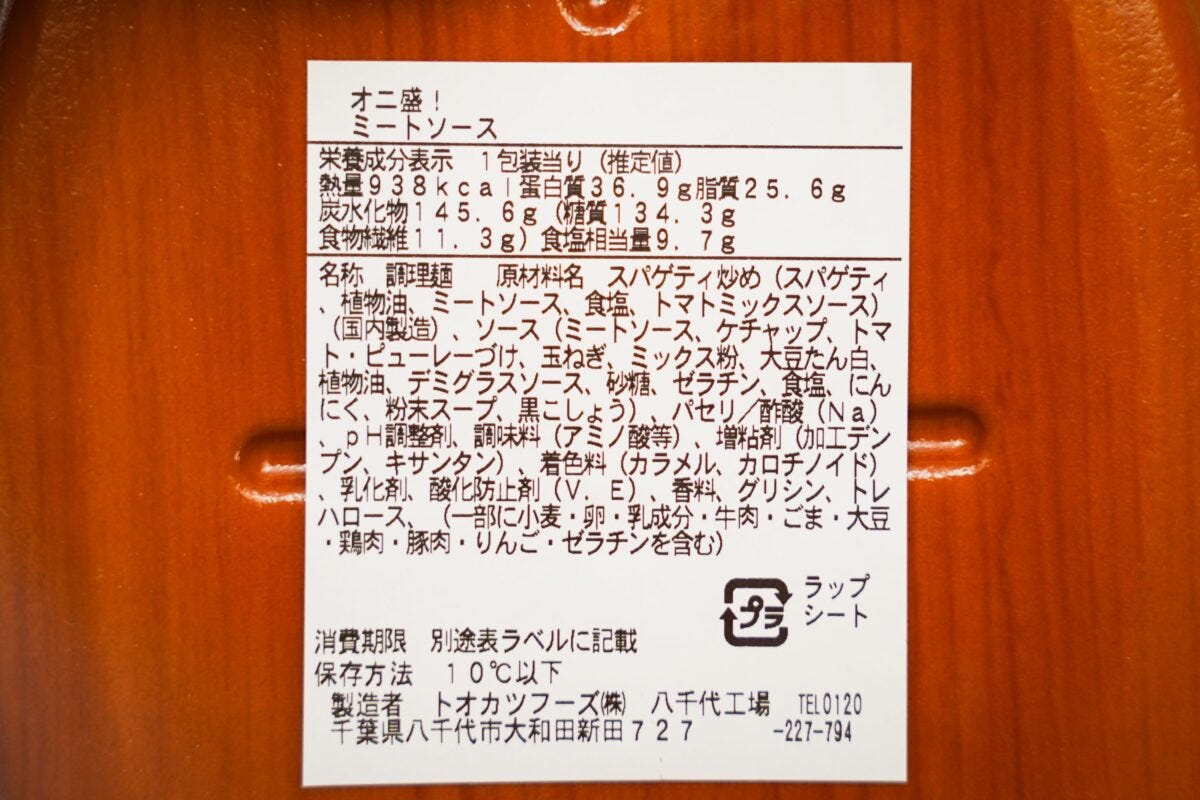 オニ盛！
ミートソース
栄養成分表示　１包装当り（推定値）
熱量９３８ｋｃａｌ蛋白質３６．９ｇ脂質２５．６ｇ
炭水化物１４５．６ｇ（糖質１３４．３ｇ
食物繊維１１．３ｇ）食塩相当量９．７ｇ
名称　調理麺　　原材料名　スパゲティ炒め（スパゲティ
、植物油、ミートソース、食塩、トマトミックスソース）
（国内製造）、ソース（ミートソース、ケチャップ、トマ
ト・ピューレーづけ、玉ねぎ、ミックス粉、大豆たん白、
植物油、デミグラスソース、砂糖、ゼラチン、食塩、にん
にく、粉末スープ、黒こしょう）、パセリ／酢酸（Ｎａ）
、ｐＨ調整剤、調味料（アミノ酸等）、増粘剤（加工デン
プン、キサンタン）、着色料（カラメル、カロチノイド）
、乳化剤、酸化防止剤（Ｖ．Ｅ）、香料、グリシン、トレ
ハロース、（一部に小麦・卵・乳成分・牛肉・ごま・大豆
・鶏肉・豚肉・りんご・ゼラチンを含む）
プラ
ラップ
シート
消費期限　別途表ラベルに記載
保存方法　１０℃以下
製造者　トオカツフーズ㈱　八千代工場　TEL0120
千葉県八千代市大和田新田７２７　-227-794